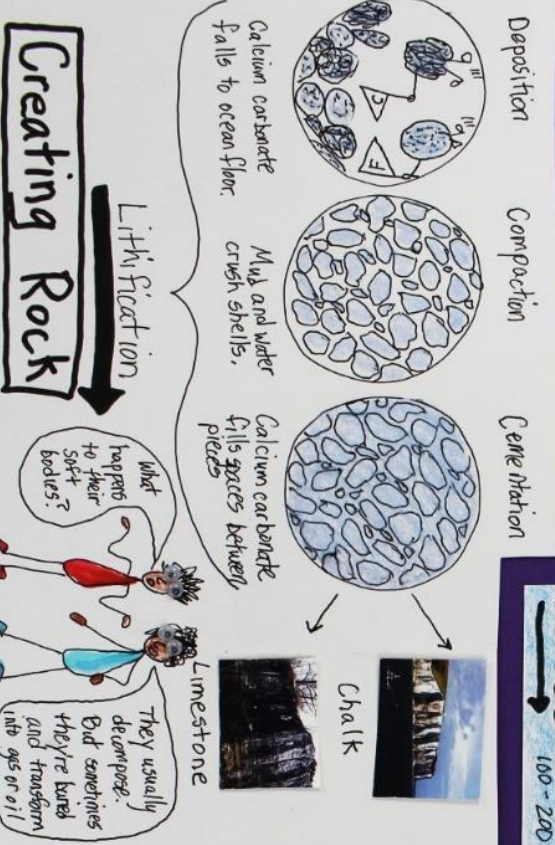 Deposition
Compaction
Cementation
Calcium carbonate
falls to ocean floor.
Mud and water
crush shells.
Calcium carbonate
fills spaces between
pieces
Lithification
Creating Rock
Chalk
Limestone
What
happens
to their
soft
bodies?
They usually
decompose.
But sometimes
they're buried
and transform
into gas or oil
100-200